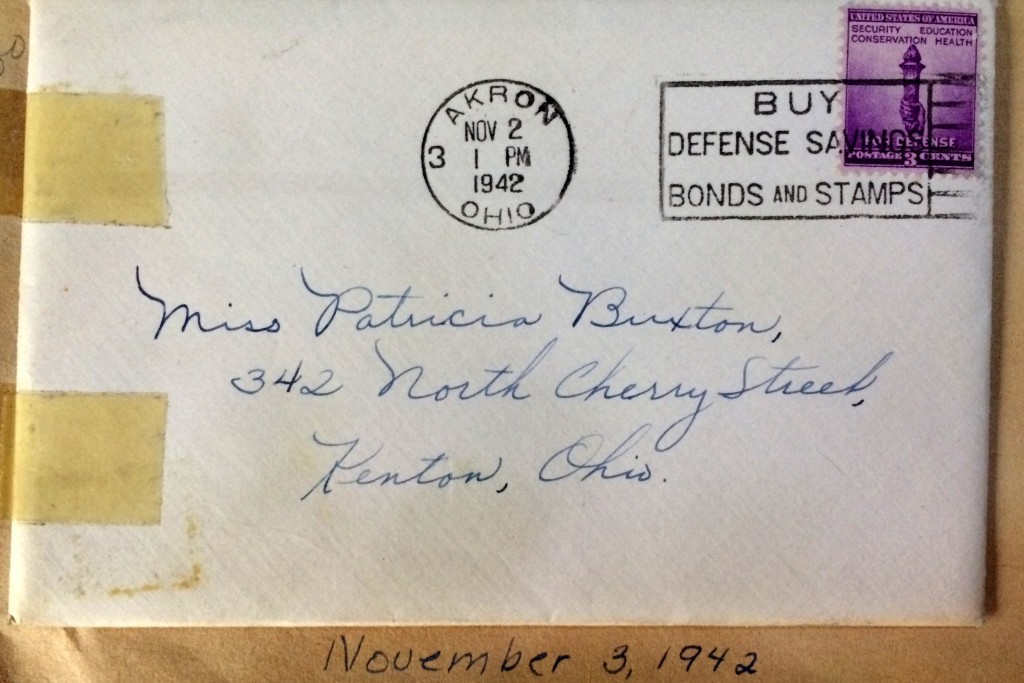 UNITED STATES OF AMERICA
SECURITY EDUCATION
CONSERVATION HEALTH
FOR DEFENSE
POSTAGE 3 CENTS
AKRON
NOV 2
3 1 PM
1942
OHIO
BUY
DEFENSE SAVINGS
BONDS AND STAMPS
Miss Patricia Buxton,
342 North Cherry Street,
Kenton, Ohio.
November 3, 1942